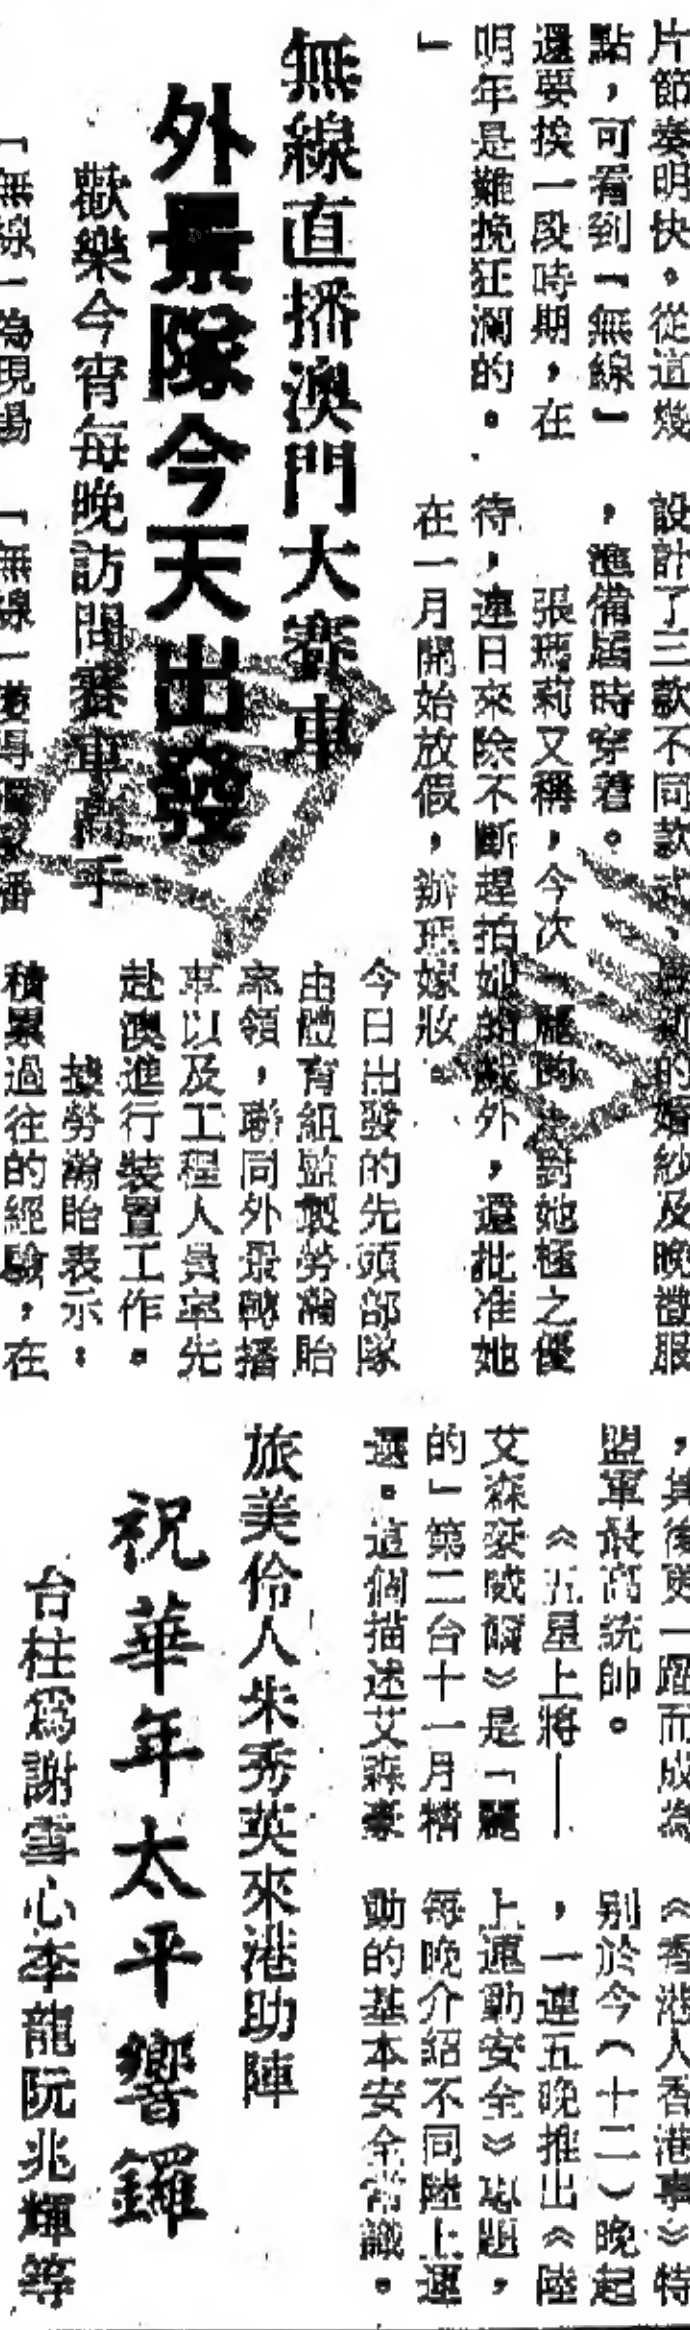 片節奏明快。從這幾
點，可看到「無線」
還要挨一段時期，在
明年是難挽狂瀾的。
」
設計了三款不同款式、最新的婚紗及晚禮服
，準備屆時穿着。
張瑪莉又稱，今次「麗的」對她極之優
待，連日來除不斷趕拍她的戲外，還批准她
在一月開始放假，辦理嫁妝。
無線直播澳門大賽車
外景隊今天出發
歡樂今宵每晚訪問賽車高手
今日出發的先頭部隊
由體育組監製勞瀚貽
率領，聯同外景轉播
車以及工程人員率先
赴澳進行裝置工作。
據勞瀚貽表示：
積累過往的經驗，在
「無線」為現場
「無線」獲得獨家播
，其後更一躍而成為
盟軍最高統帥。
《五星上將——
艾森豪威爾》是「麗
的」第二台十一月精
選。這個描述艾森豪
《香港人香港事》特
別於今（十二）晚起
，一連五晚推出《陸
上運動安全》專題，
每晚介紹不同陸上運
動的基本安全常識。
旅美伶人朱秀英來港助陣
祝華年太平響鑼
台柱爲謝雪心李龍阮兆輝等